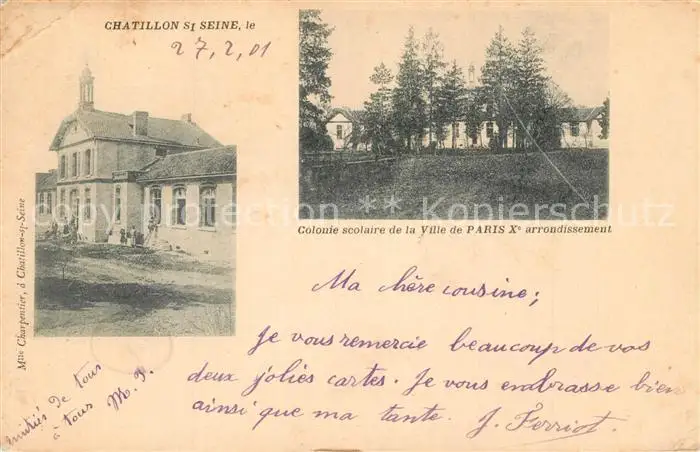 CHATILLON St SEINE, le
27, 2, 01
Colonie scolaire de la Ville de PARIS Xe arrondissement
Mlle Charpentier, à Chatillon-s-Seine
Ma chère cousine;
Je vous remercie beaucoup de vos
deux jolies cartes. Je vous embrasse bien
ainsi que ma tante. J. Ferriot
Amitiés de tous
à tous M. P.
copyright-protection © Bildurheberschutz